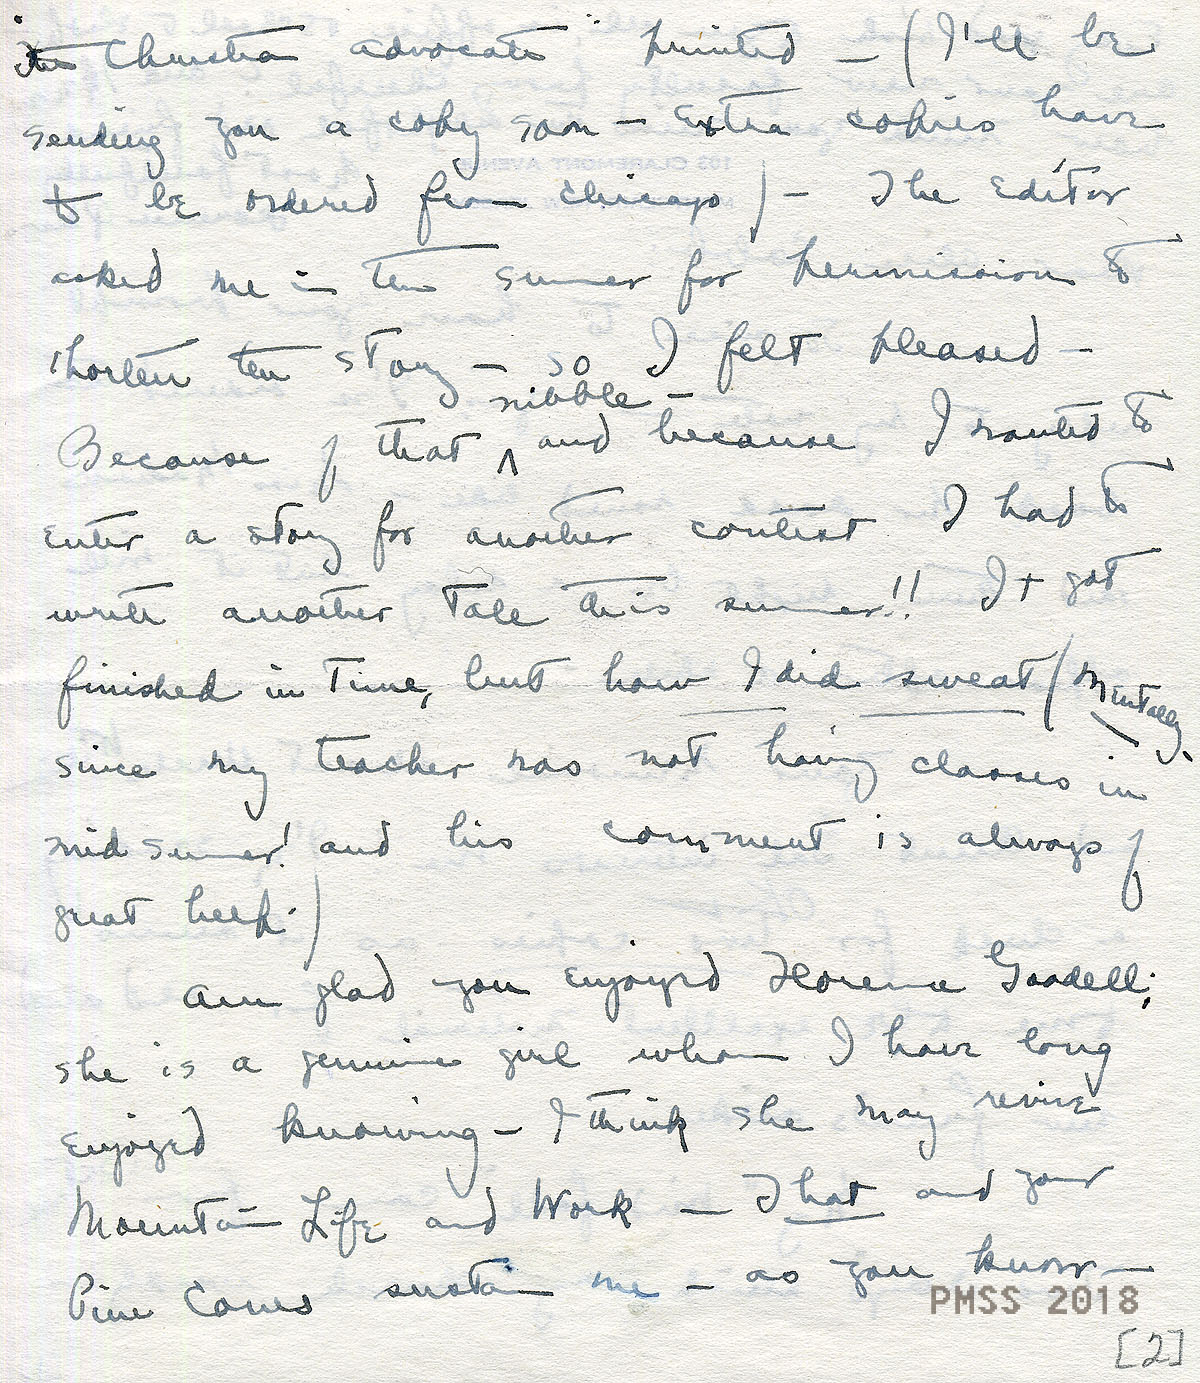 The Christian Advocate" printed – (I'll be
sending you a copy soon – Extra copies have
to be ordered from Chicago) – The Editor
asked me in the summer for permission to
shorten the story – so I felt pleased –
nibble –
Because of that ^ and because I wanted to
enter a story for another contest I had to
write another tale this summer!! It got
finished in time, but how I did sweat (mentally,
since my teacher was not having classes in
mid summer! and his comment is always of
great help.)
Am glad you enjoyed Florence Goodell;
she is a genuine girl whom I have long
enjoyed knowing – I think she may revive
Mountain Life and Work – That and your
Pine Cones sustain me – as you know –
PMSS 2018
[2]